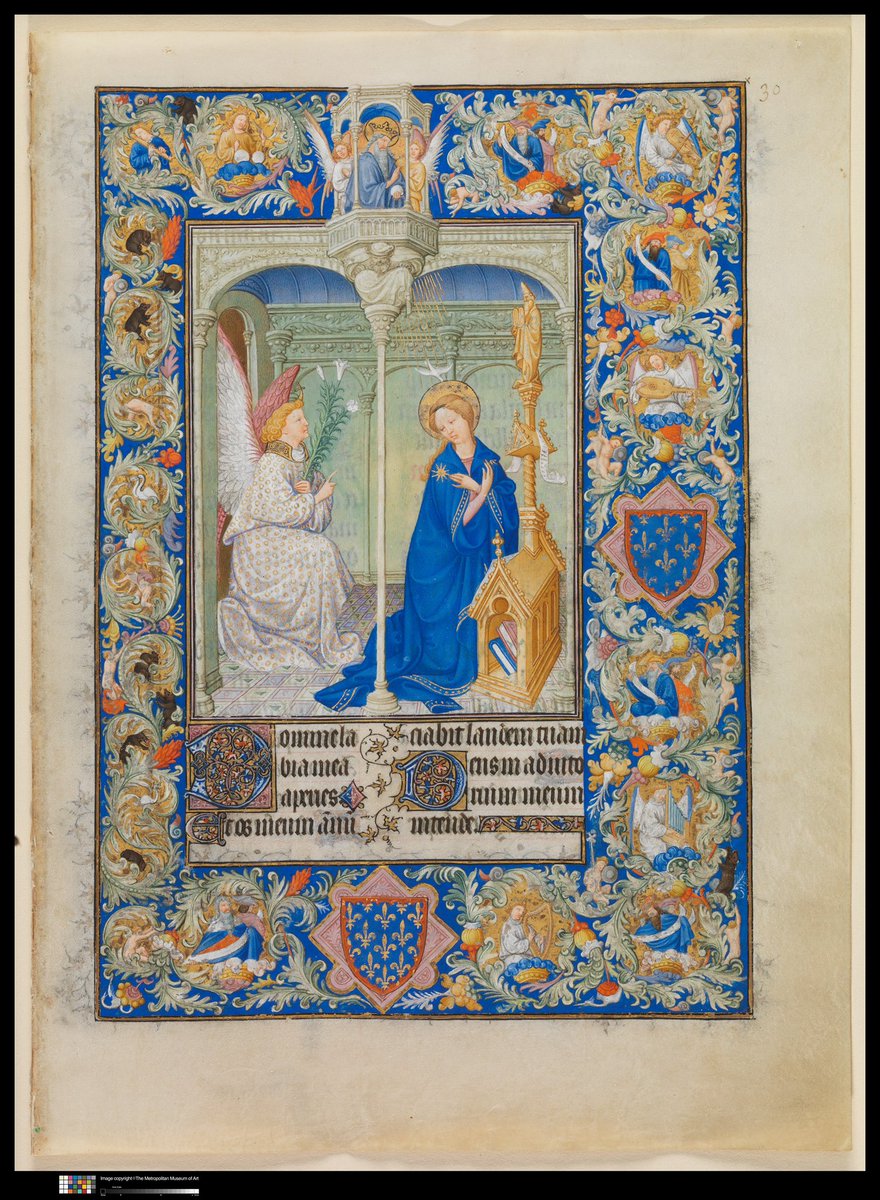 30
Domine la
bia mea
aperies
Et os meum añu
ciabit laudem tuam
Deus in adiuto
rium meum
intende.
Image copyright ©The Metropolitan Museum of Art